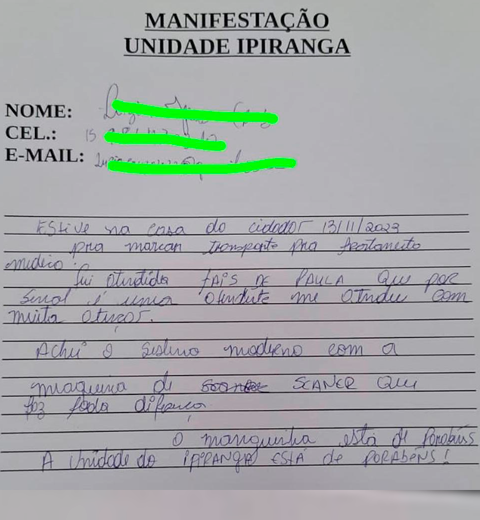 MANIFESTAÇÃO
UNIDADE IPIRANGA
NOME:
CEL.: 15
E-MAIL:
Estive na casa do cidador 13/11/2023
pra marcar transporte pra
medico.
fui atendida TAÍS DE PAULA que por
sinal é uma me atendeu com
muita
Achei o sistema moderno com a
maquina de SCANER que
faz toda diferença
o manguinha está de Parabéns
A unidade do IPIRANGA ESTÁ de PORABÉNS!